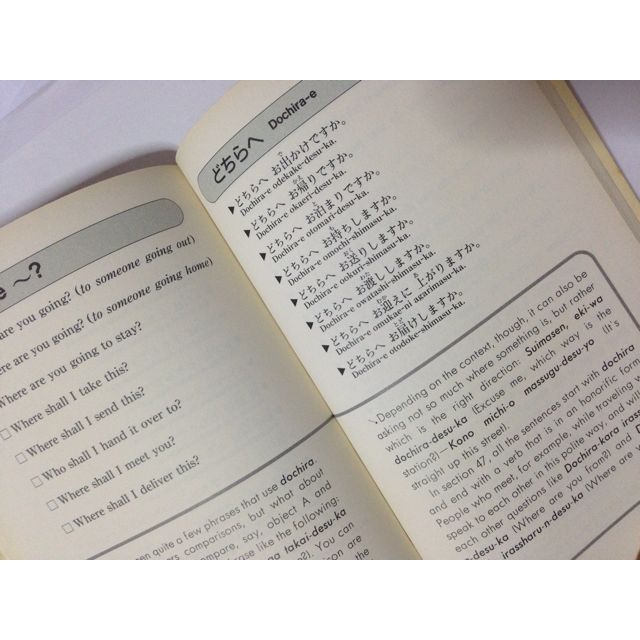 e ~?
are you going? (to someone going out)
ere are you going? (to someone going home)
Where are you going to stay?
□ Where shall I take this?
□ Where shall I send this?
□ Who shall I hand it over to?
□ Where shall I meet you?
□ Where shall I deliver this?
en quite a few phrases that use dochira,
ers comparisons, but what about
mpare, say, object A and
rase like the following:
ga takai-desu-ka
on?). You can
ion are
どちらへ Dochira-e
▶どちらへ お出かけですか。
Dochira-e odekake-desu-ka.
▶どちらへ お帰りですか。
Dochira-e okaeri-desu-ka.
▶どちらへ お泊まりですか。
Dochira-e otomari-desu-ka.
▶どちらへ お持ちしますか。
Dochira-e omochi-shimasu-ka.
▶どちらへ お送りしますか。
Dochira-e ookuri-shimasu-ka.
▶どちらへ お渡ししますか。
Dochira-e owatashi-shimasu-ka.
▶どちらへ お迎えに 上がりますか。
Dochira-e omukae-ni agarimasu-ka.
▶どちらへ お届けしますか。
Dochira-e otodoke-shimasu-ka.
Depending on the context, though, it can also be
asking not so much where something is, but rather
which is the right direction: Suimasen, eki-wa
dochira-desu-ka (Excuse me, which way is the
station?)—Kono michi-o massugu-desu-yo (It's
straight up this street).
In section 47, all the sentences start with dochira
and end with a verb that is in an honorific form.
People who meet, for example, while traveling
speak to each other in this polite way, and will
each other questions like Dochira-kara irass
n-desu-ka (Where are you from?) and D
irassharu-n-desu-ka (Where are y